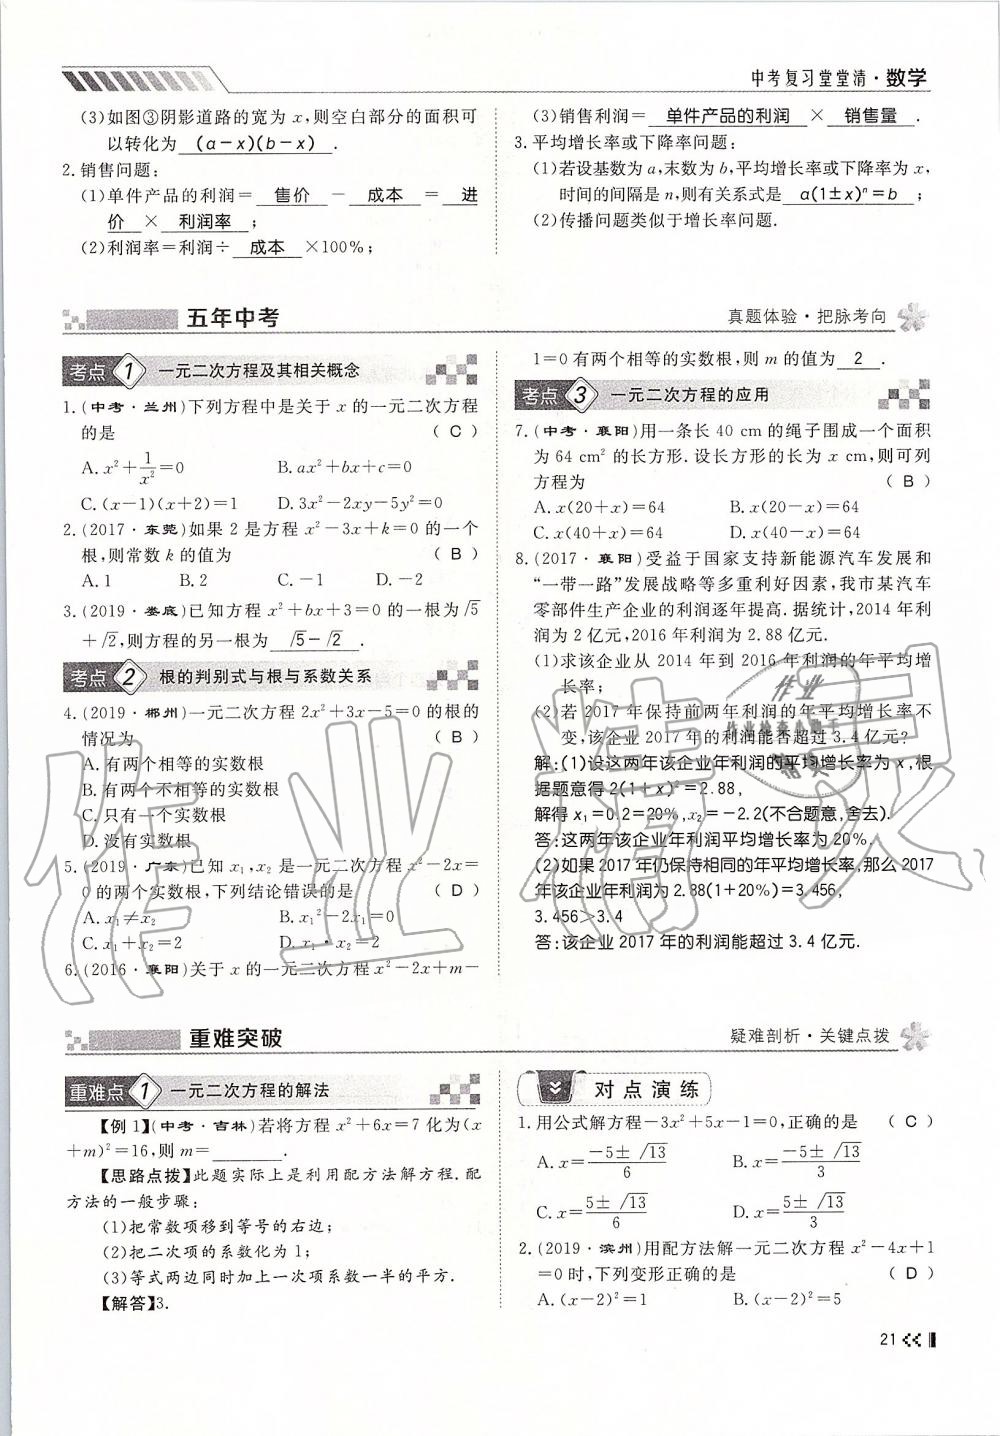 中考复习堂堂清·数学
(3)如图③阴影道路的宽为 x,则空白部分的面积可
以转化为 (a-x)(b-x) .
2. 销售问题:
(1)单件产品的利润= 售价 - 成本 = 进
价 × 利润率 ;
(2)利润率=利润÷ 成本 ×100%;
(3)销售利润= 单件产品的利润 × 销售量 .
3. 平均增长率或下降率问题:
(1)若设基数为 a,末数为 b,平均增长率或下降率为 x,
时间的间隔是 n,则有关系式是 a(1±x)ⁿ=b ;
(2)传播问题类似于增长率问题.
五年中考
真题体验·把脉考向
考点 1 一元二次方程及其相关概念
1. (中考·兰州)下列方程中是关于 x 的一元二次方程
的是 ( C )
A. x²+1/x²=0 B. ax²+bx+c=0
C. (x-1)(x+2)=1 D. 3x²-2xy-5y²=0
2. (2017·东莞)如果 2 是方程 x²-3x+k=0 的一个
根,则常数 k 的值为 ( B )
A. 1 B. 2 C. -1 D. -2
3. (2019·娄底)已知方程 x²+bx+3=0 的一根为√5
+√2,则方程的另一根为 √5-√2 .
考点 2 根的判别式与根与系数关系
4. (2019·郴州)一元二次方程 2x²+3x-5=0 的根的
情况为 ( B )
A. 有两个相等的实数根
B. 有两个不相等的实数根
C. 只有一个实数根
D. 没有实数根
5. (2019·广东)已知 x₁,x₂ 是一元二次方程 x²-2x=
0 的两个实数根,下列结论错误的是 ( D )
A. x₁≠x₂ B. x₁²-2x₁=0
C. x₁+x₂=2 D. x₁·x₂=2
6. (2016·襄阳)关于 x 的一元二次方程 x²-2x+m-
1=0 有两个相等的实数根,则 m 的值为 2 .
考点 3 一元二次方程的应用
7. (中考·襄阳)用一条长 40 cm 的绳子围成一个面积
为 64 cm² 的长方形. 设长方形的长为 x cm,则可列
方程为 ( B )
A. x(20+x)=64 B. x(20-x)=64
C. x(40+x)=64 D. x(40-x)=64
8. (2017·襄阳)受益于国家支持新能源汽车发展和
“一带一路”发展战略等多重利好因素,我市某汽车
零部件生产企业的利润逐年提高. 据统计,2014 年利
润为 2 亿元,2016 年利润为 2.88 亿元.
(1)求该企业从 2014 年到 2016 年利润的年平均增
长率;
(2)若 2017 年保持前两年利润的年平均增长率不
变,该企业 2017 年的利润能否超过 3.4 亿元?
解:(1)设这两年该企业年利润的平均增长率为 x,根
据题意得 2(1+x)²=2.88,
解得 x₁=0.2=20%,x₂=-2.2(不合题意,舍去).
答:这两年该企业年利润平均增长率为 20%.
(2)如果 2017 年仍保持相同的年平均增长率,那么 2017
年该企业年利润为 2.88(1+20%)=3.456,
3.456>3.4
答:该企业 2017 年的利润能超过 3.4 亿元.
重难突破
疑难剖析·关键点拨
重难点 1 一元二次方程的解法
【例 1】(中考·吉林)若将方程 x²+6x=7 化为(x
+m)²=16,则 m=______.
【思路点拨】此题实际上是利用配方法解方程. 配
方法的一般步骤:
(1)把常数项移到等号的右边;
(2)把二次项的系数化为 1;
(3)等式两边同时加上一次项系数一半的平方.
【解答】3.
对点演练
1. 用公式解方程-3x²+5x-1=0,正确的是 ( C )
A. x=(-5±√13)/6 B. x=(-5±√13)/3
C. x=(5±√13)/6 D. x=(5±√13)/3
2. (2019·滨州)用配方法解一元二次方程 x²-4x+1
=0 时,下列变形正确的是 ( D )
A. (x-2)²=1 B. (x-2)²=5
21
作业精灵